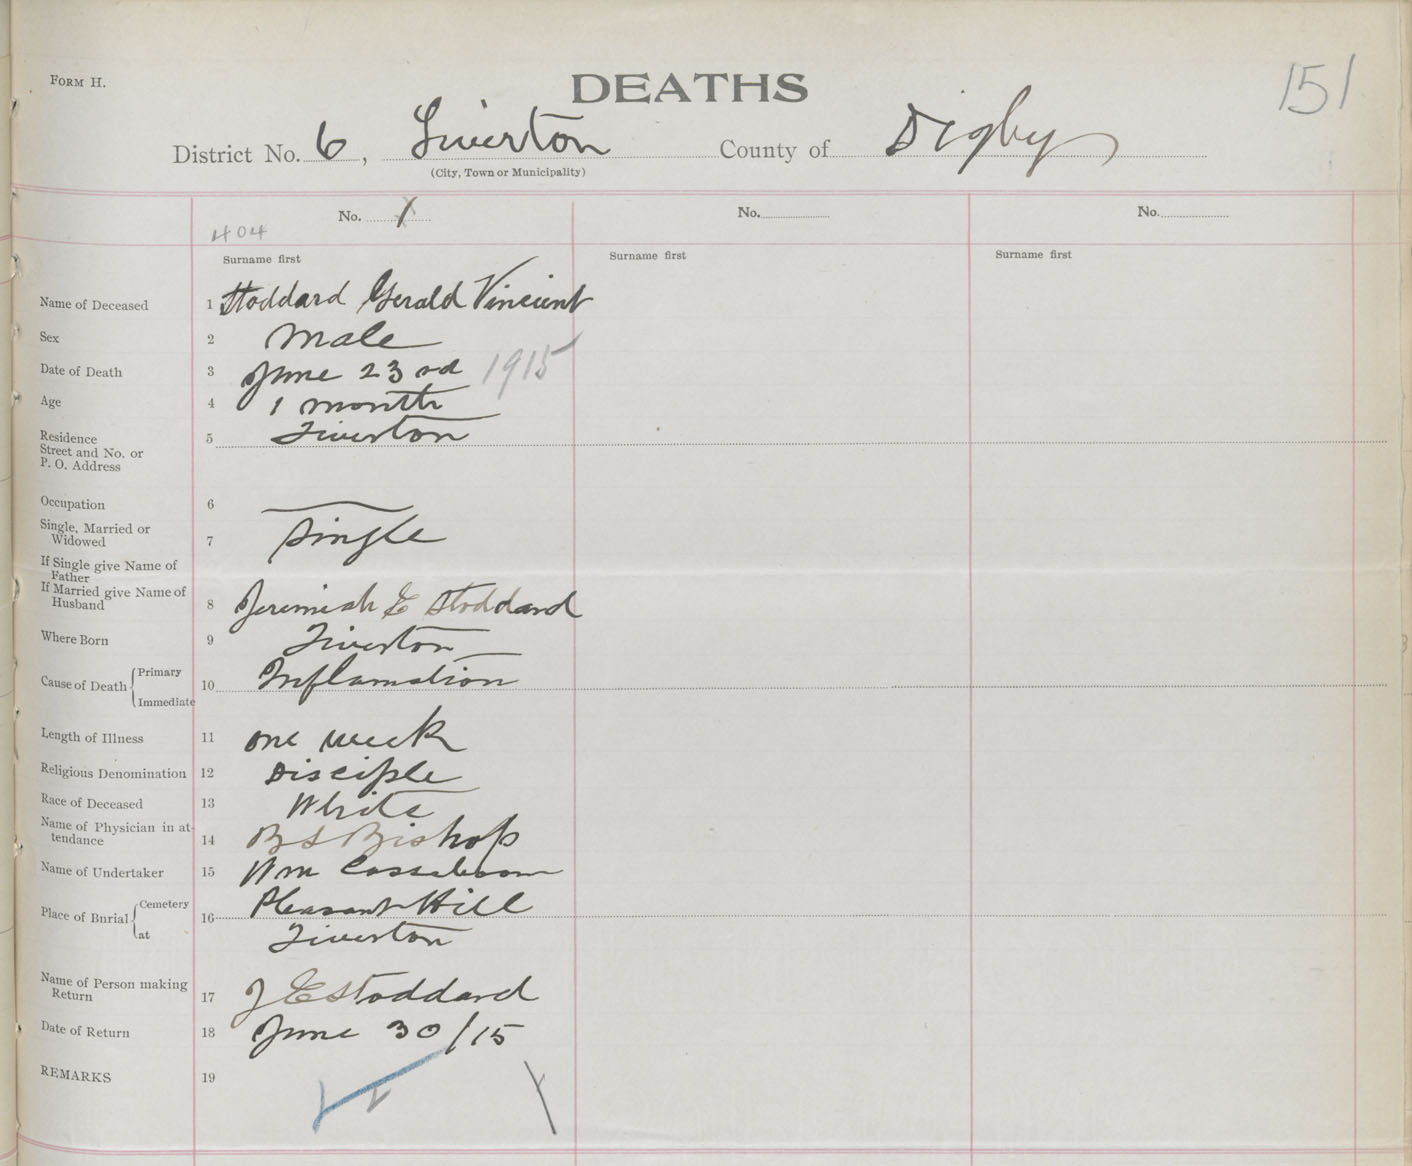 FORM H.
DEATHS
151
District No. 6, Tiverton County of Digby
(City, Town or Municipality)
No. 1 No. No.
404
Surname first Surname first Surname first
Name of Deceased 1 Stoddard Gerald Vincient
Sex 2 Male
Date of Death 3 June 23rd 1915
Age 4 1 month
Residence 5 Tiverton
Street and No. or
P. O. Address
Occupation 6
Single, Married or
Widowed 7 Single
If Single give Name of
Father
If Married give Name of
Husband 8 Jeremiah E Stoddard
Where Born 9 Tiverton
Cause of Death Primary 10 Inflamation
Immediate
Length of Illness 11 one week
Religious Denomination 12 Disciple
Race of Deceased 13 White
Name of Physician in at-
tendance 14 B S Bishop
Name of Undertaker 15 Wm Cossaboom
Place of Burial Cemetery 16 Pleasant Hill
at Tiverton
Name of Person making
Return 17 J E Stoddard
Date of Return 18 June 30/15
REMARKS 19